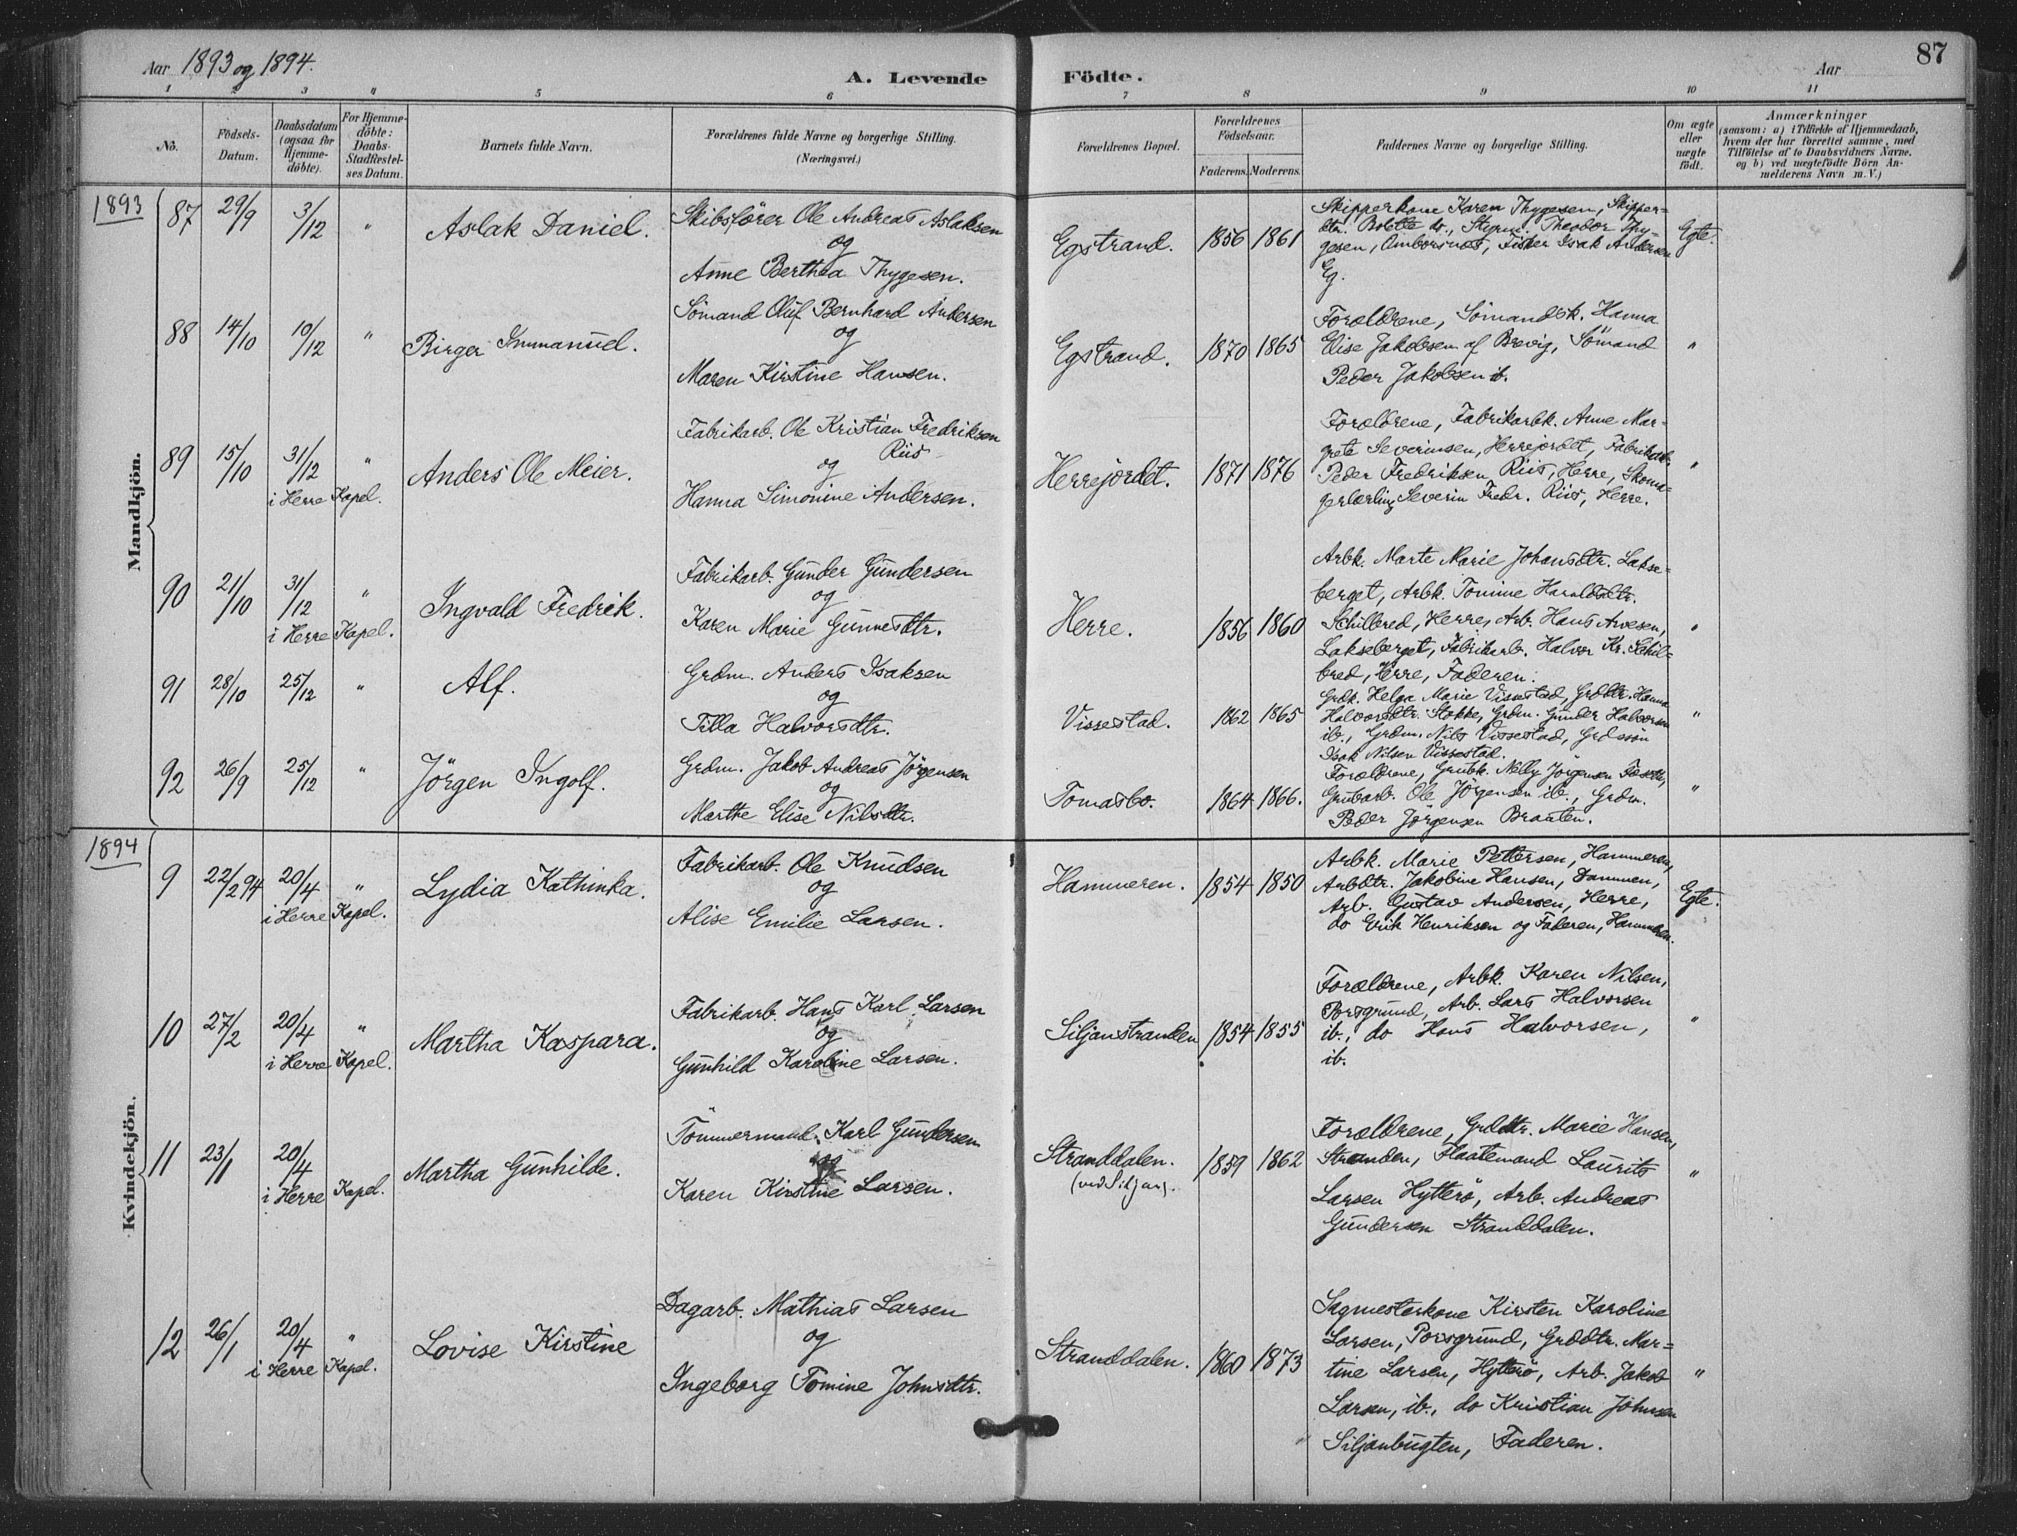 87
Aar 1893 og 1894.
A. Levende Födte.
Aar
1 2 3 4 5 6 7 8 9 10 11
No.
Födsels-
Datum.
Daabsdatum
(ogsaa for
Hjemme-
döbte).
For Hjemme-
döbte:
Daabs-
Stadfæstel-
ses Datum.
Barnets fulde Navn.
Forældrenes fulde Navne og borgerlige Stilling.
(Næringsvei.)
Forældrenes Bopæl.
Forældrenes
Födselsaar.
Faderens. Moderens.
Faddernes Navne og borgerlige Stilling.
Om ægte
eller
uægte
födt.
Anmærkninger
(saasom: a) i Tilfælde af Hjemmedaab,
hvem der har forrettet samme, med
Tilföielse af to Daabsvidners Navne,
og b) ved uægtefödte Börn An-
melderens Navn m. V.)
Mandkjön.
1893
87 29/9 3/12 " Aslak Daniel.
Skibsfører Ole Andreas Aslaksen
og
Anne Berthea Thygesen.
Egstrand. 1856 1861
Skipperkone Karen Thygesen, Skipper-
dtr. Bolette do., Styrm. Theodor Thy-
gesen, Omborsnes, Fisker Isak Andersen
Eg.
Egte.
88 14/10 10/12 " Birger Immanuel.
Sømand Oluf Bernhard Andersen
og
Maren Kirstine Hansen.
Egstrand. 1870 1865
Forældrene, Sømandsk. Hanna
Elise Jakobsen af Brevig, Sømand
Peder Jakobsen ib.
"
89 15/10 31/12 "
i Herre Kapel.
Anders Ole Meier.
Fabrikarb. Ole Kristian Fredriksen
Riis
og
Hanna Simonine Andersen.
Herrejordet. 1871 1876
Forældrene, Fabrikarbk. Anne Mar-
grete Severinsen, Herrejordet, Fabrikarb.
Peder Fredriksen Riis, Herre, Skoma-
gerlærling Severin Fredr. Riis, Herre.
"
90 21/10 31/12 "
i Herre Kapel.
Ingvald Fredrik.
Fabrikarb. Gunder Gundersen
og
Karen Marie Gunnesdtr.
Herre. 1856 1860
Arbk. Marte Marie Johansdtr. Lakse-
berget, Arbk. Tomine Haraldsdtr.
Schilbred, Herre, Arb. Hans Arvesen,
Lakseberget, Fabrikarb. Halvor Kr. Schil-
bred, Herre, Faderen.
"
91 28/10 25/12 " Alf.
Grdm. Anders Isaksen
og
Tilla Halvorsdtr.
Vissestad. 1862 1865
Grdk. Helga Marie Vissestad, Grdtr. Hanna
Halvorsdtr. Stokke, Grdm. Gunder Halvorsen
ib., Grdm. Nils Vissestad, Grdssøn
Isak Nilsen Vissestad.
"
92 26/9 25/12 " Jörgen Ingolf.
Grdm. Jakob Andreas Jörgensen
og
Marthe Elise Nilsdtr.
Tomasbo. 1864 1866.
Forældrene, Grubk. Nelly Jörgensen
Grubarb. Ole Jörgensen ib., Grdm.
Peder Jörgensen Braaten.
"
Kvindekjön.
1894
9 22/2 94 20/4 "
i Herre Kapel.
Lydia Kathinka.
Fabrikarb. Ole Knudsen
og
Alise Emilie Larsen.
Hammeren. 1854 1850
Arbk. Marie Pettersen, Hammeren,
Arbdtr. Jakobine Hansen, Dammen,
Arb. Gustav Andersen, Herre,
do Erik Henriksen og Faderen, Hammeren.
Egte.
10 27/2 20/4 "
i Herre Kapel.
Martha Kaspara.
Fabrikarb. Hans Karl Larsen
og
Gunhild Karoline Larsen.
Siljanstranden 1854 1855
Forældrene, Arbk. Karen Nilsen,
Porsgrund, Arb. Lars Halvorsen
ib., do Hans Halvorsen,
ib.
"
11 23/1 20/4
i Herre Kapel.
Martha Gunhilde.
Tömmermand Karl Gundersen
og
Karen Kirstine Larsen.
Stranddalen.
(ved Siljan).
1859 1862
Forældrene, Grddtr. Marie Hansen,
Stranden, Flaatemand Laurits
Larsen Hytterø, Arb. Andreas
Gundersen Stranddalen.
"
12 26/1 20/4 "
i Herre Kapel.
Lovise Kirstine
Dagarb. Mathias Larsen
og
Ingeborg Tomine Johnsdtr.
Stranddalen. 1860 1873
Sagmesterkone Kirsten Karoline
Larsen, Porsgrund, Grddtr. Mar-
tine Larsen, Hytterø, Arb. Jakob
Larsen, ib., do Kristian Johnsen
Siljanbugten, Faderen.
"